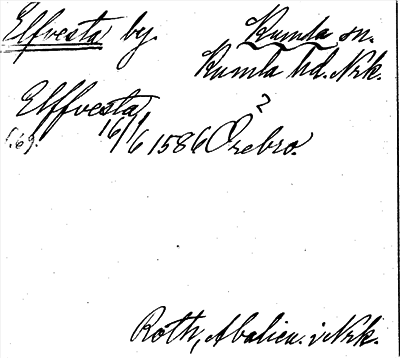 Elfvesta by. Kumla sn.
Kumla hd. Nrk.
Elffvesta,
16/6 1586 Örebro.
Roth, Abalien. i Nrk.